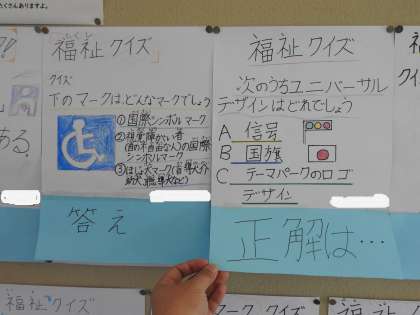 たくさんありますよ。
福祉クイズ
クイズ
下のマークは、どんなマークでしょう
①国際シンボルマーク
②視覚障がい者
(目の不自由な人)の国際
シンボルマーク
③ほじょ犬マーク(盲導犬、介
助犬、聴導犬など)
答え
福祉クイズ
次のうちユニバーサル
デザインはどれでしょう
A 信号
B 国旗
C テーマパークのロゴ
デザイン
正解は…
ある。
福祉クイズ
マーククイズ
福祉クイズ